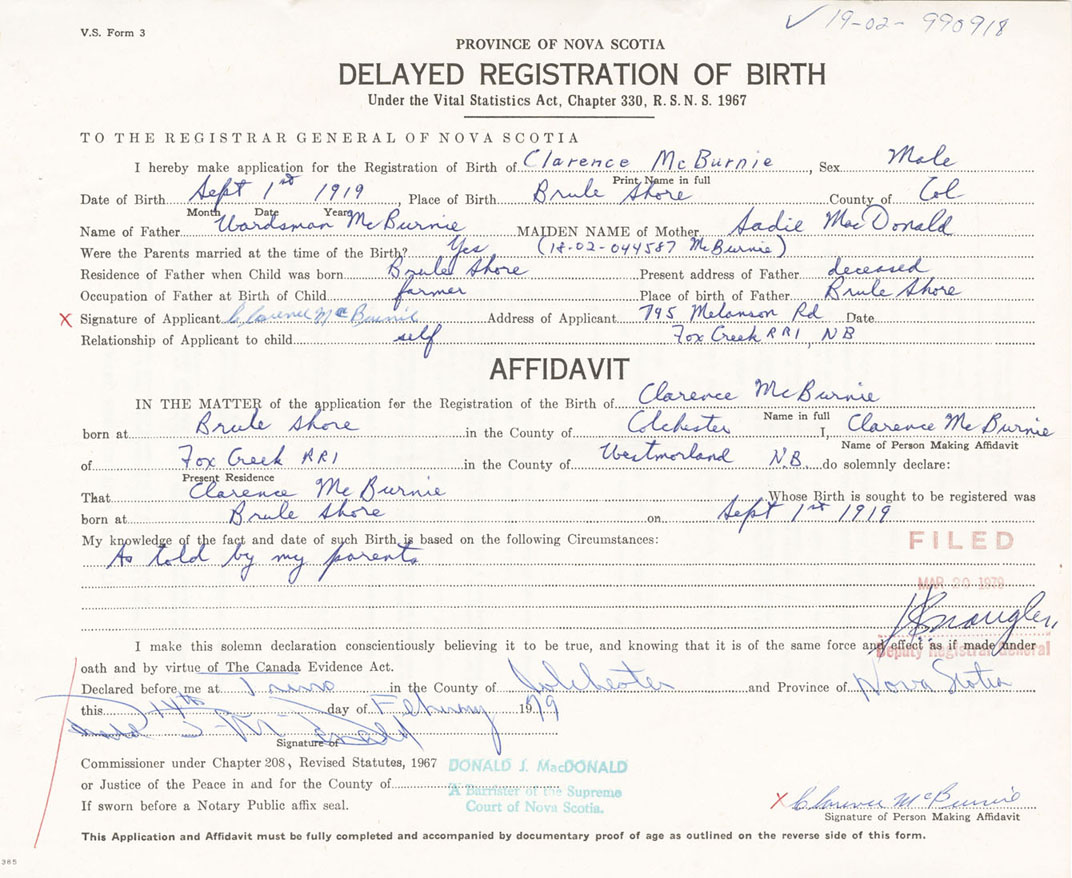 19-02-990918
V.S. Form 3
PROVINCE OF NOVA SCOTIA
DELAYED REGISTRATION OF BIRTH
Under the Vital Statistics Act, Chapter 330, R. S. N. S. 1967
TO THE REGISTRAR GENERAL OF NOVA SCOTIA
I hereby make application for the Registration of Birth of Clarence McBurnie, Sex Male
Print Name in full
Date of Birth Sept 1st 1919, Place of Birth Brule Shore County of Col
Month Date Year
Name of Father Wardsman McBurnie MAIDEN NAME of Mother Sadie MacDonald
Were the Parents married at the time of the Birth? Yes (18-02-044587 McBurnie)
Residence of Father when Child was born Brule Shore Present address of Father deceased
Occupation of Father at Birth of Child farmer Place of birth of Father Brule Shore
X Signature of Applicant Clarence McBurnie Address of Applicant 795 Melanson Rd Date
Relationship of Applicant to child self Fox Creek RR1, NB
AFFIDAVIT
IN THE MATTER of the application for the Registration of the Birth of Clarence McBurnie
Name in full
born at Brule Shore in the County of Colchester I, Clarence McBurnie
Name of Person Making Affidavit
of Fox Creek RR1 in the County of Westmorland N.B. do solemnly declare:
Present Residence
That Clarence McBurnie Whose Birth is sought to be registered was
born at Brule Shore on Sept 1st 1919
My knowledge of the fact and date of such Birth is based on the following Circumstances:
As told by my parents
FILED
MAR 20 1979
Deputy Registrar General
I make this solemn declaration conscientiously believing it to be true, and knowing that it is of the same force and effect as if made under
oath and by virtue of The Canada Evidence Act.
Declared before me at Truro in the County of Colchester and Province of Nova Scotia
this 14th day of February 1979
Signature of
Commissioner under Chapter 208, Revised Statutes, 1967
DONALD J. MacDONALD
or Justice of the Peace in and for the County of
A Barrister of the Supreme
Court of Nova Scotia.
If sworn before a Notary Public affix seal.
X Clarence McBurnie
Signature of Person Making Affidavit
This Application and Affidavit must be fully completed and accompanied by documentary proof of age as outlined on the reverse side of this form.
385